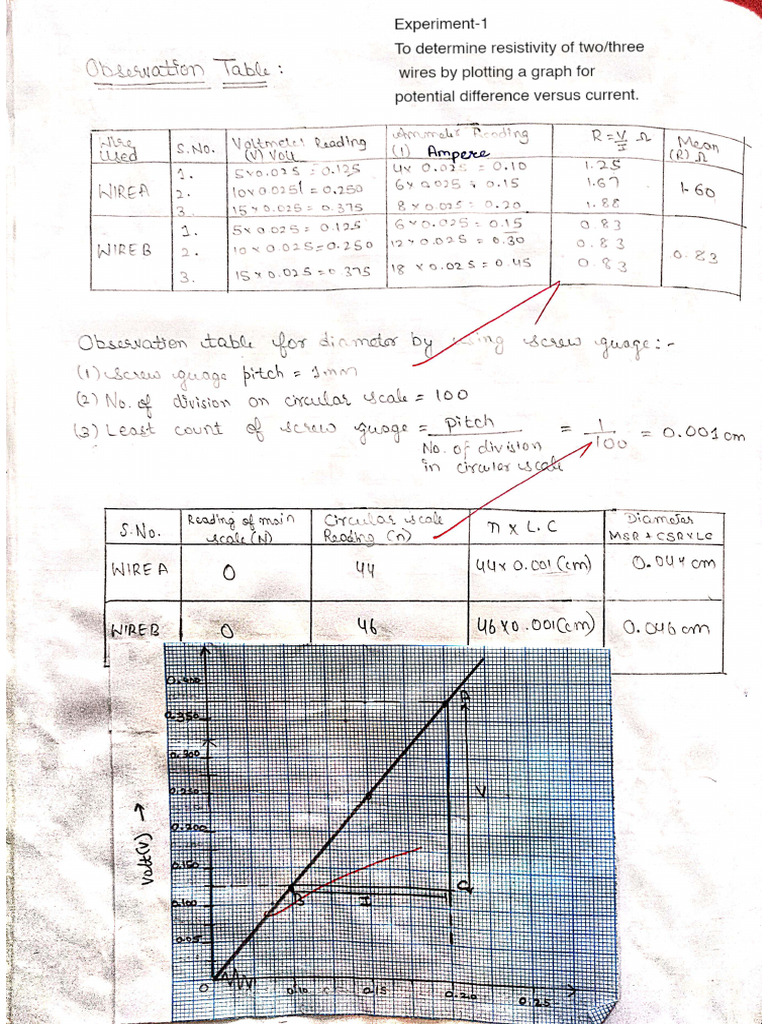 Experiment-1
To determine resistivity of two/three
wires by plotting a graph for
potential difference versus current.
Observation Table:
Wire Used | S.No. | Voltmeter Reading (V) Volt | Ammeter Reading (I) Ampere | R=V/I Ω | Mean (R) Ω
WIRE A | 1. | 5x0.025 = 0.125 | 4x 0.025 = 0.10 | 1.25 | 1.60
2. | 10x0.025 = 0.250 | 6x 0.025 = 0.15 | 1.67
3. | 15x0.025 = 0.375 | 8x0.025 = 0.20 | 1.88
WIRE B | 1. | 5x0.025 = 0.125 | 6x0.025 = 0.15 | 0.83 | 0.83
2. | 10x0.025=0.250 | 12x0.025 = 0.30 | 0.83
3. | 15x0.025=0.375 | 18x0.025= 0.45 | 0.83
Observation table for diameter by using screw guage:-
(1) screw guage pitch = 1mm
(2) No. of division on circular scale = 100
(3) Least count of screw guage = pitch / No. of division in circular scale = 1/100 = 0.001cm
S.No. | Reading of main scale (N) | Circular scale Reading (n) | n x L.C | Diameter MSR + CSRxLC
WIRE A | 0 | 44 | 44x 0.001(cm) | 0.044 cm
WIRE B | 0 | 46 | 46x0.001(cm) | 0.046 cm
0.400
0.350
0.300
0.250
0.200
0.150
0.100
0.05
Volt(V) →
V
I
0
0.10
0.15
0.20
0.25